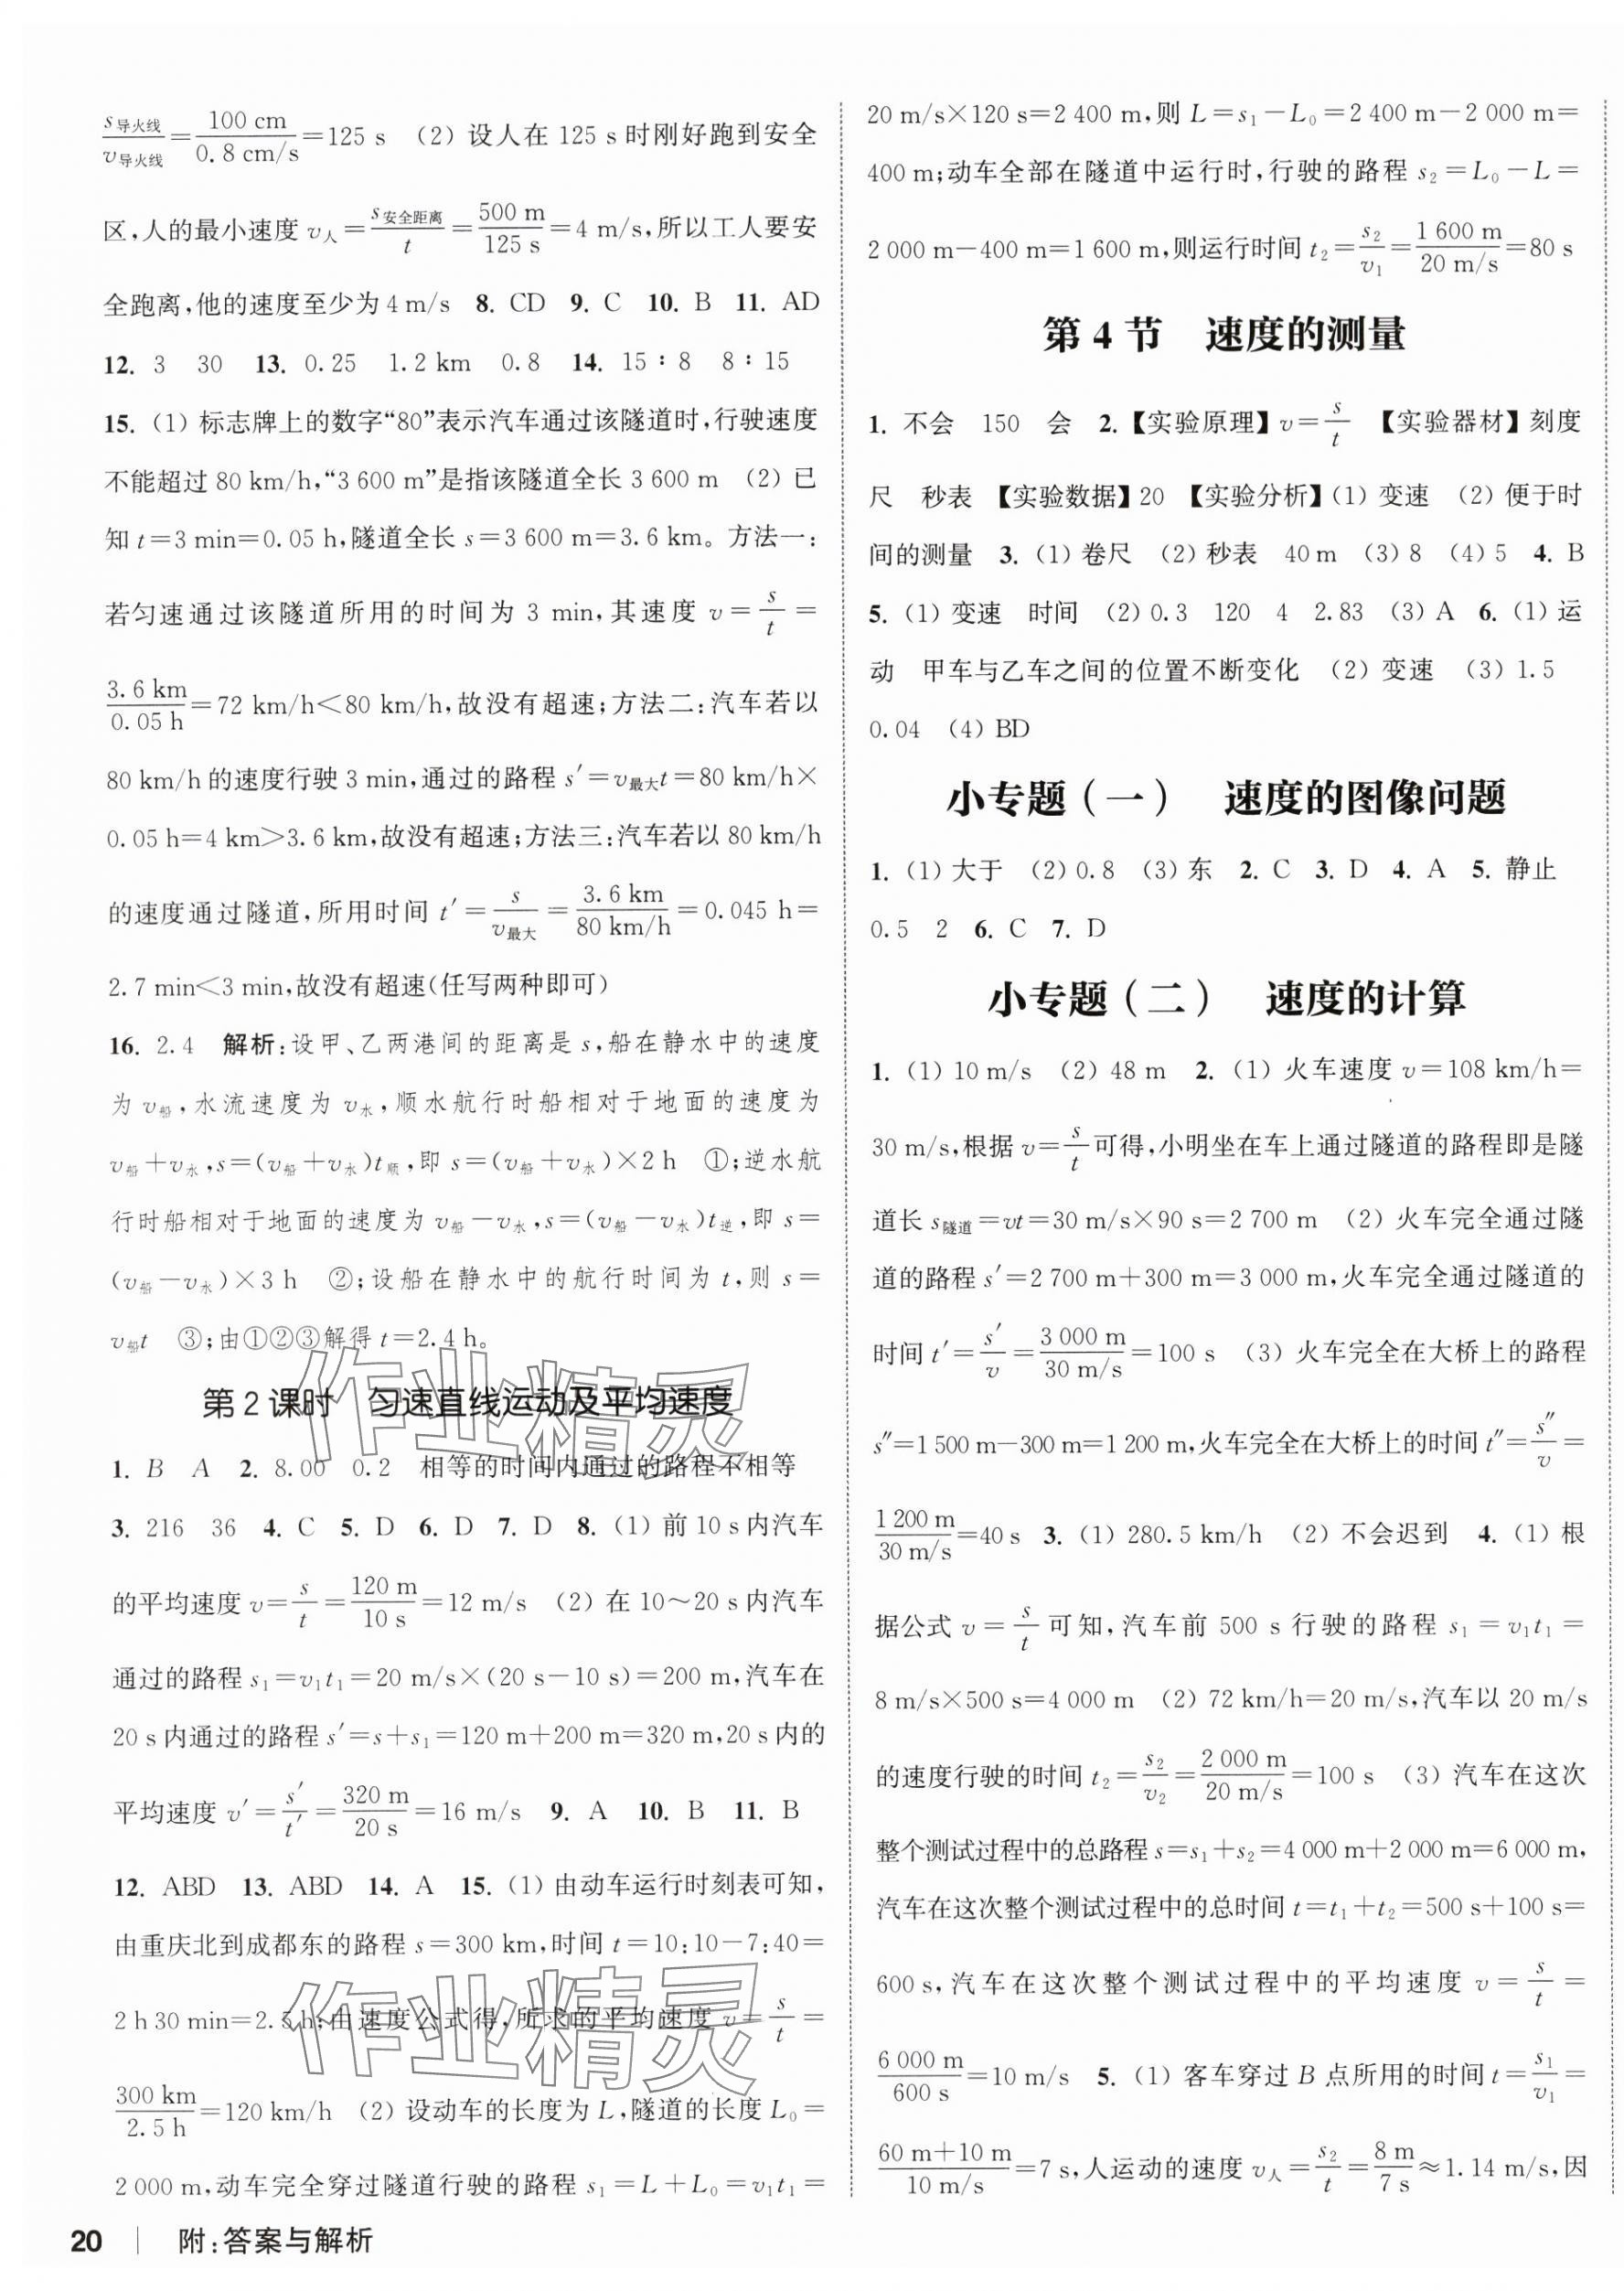 s导火线/v导火线=100 cm/0.8 cm/s=125 s (2) 设人在 125 s 时刚好跑到安全
区,人的最小速度 v人=s安全距离/t=500 m/125 s=4 m/s,所以工人要安
全跑离,他的速度至少为 4 m/s 8. CD 9. C 10. B 11. AD
12. 3 30 13. 0.25 1.2 km 0.8 14. 15∶8 8∶15
15. (1) 标志牌上的数字“80”表示汽车通过该隧道时,行驶速度
不能超过 80 km/h,“3 600 m”是指该隧道全长 3 600 m (2) 已
知 t=3 min=0.05 h,隧道全长 s=3 600 m=3.6 km。方法一:
若匀速通过该隧道所用的时间为 3 min,其速度 v=s/t=
3.6 km/0.05 h=72 km/h<80 km/h,故没有超速;方法二:汽车若以
80 km/h 的速度行驶 3 min,通过的路程 s′=v最大t=80 km/h×
0.05 h=4 km>3.6 km,故没有超速;方法三:汽车若以 80 km/h
的速度通过隧道,所用时间 t′=s/v最大=3.6 km/80 km/h=0.045 h=
2.7 min<3 min,故没有超速(任写两种即可)
16. 2.4 解析:设甲、乙两港间的距离是 s,船在静水中的速度
为 v船,水流速度为 v水,顺水航行时船相对于地面的速度为
v船+v水,s=(v船+v水)t顺,即 s=(v船+v水)×2 h ①;逆水航
行时船相对于地面的速度为 v船-v水,s=(v船-v水)t逆,即 s=
(v船-v水)×3 h ②;设船在静水中的航行时间为 t,则 s=
v船t ③;由①②③解得 t=2.4 h。
第 2 课时 匀速直线运动及平均速度
1. B A 2. 8.00 0.2 相等的时间内通过的路程不相等
3. 216 36 4. C 5. D 6. D 7. D 8. (1) 前 10 s 内汽车
的平均速度 v=s/t=120 m/10 s=12 m/s (2) 在 10~20 s 内汽车
通过的路程 s₁=v₁t₁=20 m/s×(20 s-10 s)=200 m,汽车在
20 s 内通过的路程 s′=s+s₁=120 m+200 m=320 m,20 s 内的
平均速度 v′=s′/t′=320 m/20 s=16 m/s 9. A 10. B 11. B
12. ABD 13. ABD 14. A 15. (1) 由动车运行时刻表可知,
由重庆北到成都东的路程 s=300 km,时间 t=10:10-7:40=
2 h 30 min=2.5 h;由速度公式得,所求的平均速度 v=s/t=
300 km/2.5 h=120 km/h (2) 设动车的长度为 L,隧道的长度 L₀=
2 000 m,动车完全穿过隧道行驶的路程 s₁=L+L₀=v₁t₁=
20 m/s×120 s=2 400 m,则 L=s₁-L₀=2 400 m-2 000 m=
400 m;动车全部在隧道中运行时,行驶的路程 s₂=L₀-L=
2 000 m-400 m=1 600 m,则运行时间 t₂=s₂/v₁=1 600 m/20 m/s=80 s
第 4 节 速度的测量
1. 不会 150 会 2.【实验原理】v=s/t 【实验器材】刻度
尺 秒表 【实验数据】20 【实验分析】(1) 变速 (2) 便于时
间的测量 3. (1) 卷尺 (2) 秒表 40 m (3) 8 (4) 5 4. B
5. (1) 变速 时间 (2) 0.3 120 4 2.83 (3) A 6. (1) 运
动 甲车与乙车之间的位置不断变化 (2) 变速 (3) 1.5
0.04 (4) BD
小专题(一) 速度的图像问题
1. (1) 大于 (2) 0.8 (3) 东 2. C 3. D 4. A 5. 静止
0.5 2 6. C 7. D
小专题(二) 速度的计算
1. (1) 10 m/s (2) 48 m 2. (1) 火车速度 v=108 km/h=
30 m/s,根据 v=s/t可得,小明坐在车上通过隧道的路程即是隧
道长 s隧道=vt=30 m/s×90 s=2 700 m (2) 火车完全通过隧
道的路程 s′=2 700 m+300 m=3 000 m,火车完全通过隧道的
时间 t′=s′/v=3 000 m/30 m/s=100 s (3) 火车完全在大桥上的路程
s″=1 500 m-300 m=1 200 m,火车完全在大桥上的时间 t″=s″/v=
1 200 m/30 m/s=40 s 3. (1) 280.5 km/h (2) 不会迟到 4. (1) 根
据公式 v=s/t 可知,汽车前 500 s 行驶的路程 s₁=v₁t₁=
8 m/s×500 s=4 000 m (2) 72 km/h=20 m/s,汽车以 20 m/s
的速度行驶的时间 t₂=s₂/v₂=2 000 m/20 m/s=100 s (3) 汽车在这次
整个测试过程中的总路程 s=s₁+s₂=4 000 m+2 000 m=6 000 m,
汽车在这次整个测试过程中的总时间 t=t₁+t₂=500 s+100 s=
600 s,汽车在这次整个测试过程中的平均速度 v=s/t=
6 000 m/600 s=10 m/s 5. (1) 客车穿过 B 点所用的时间 t=s₁/v₁=
60 m+10 m/10 m/s=7 s,人运动的速度 v人=s₂/t=8 m/7 s≈1.14 m/s,因
作业精灵
作业精灵
20 附:答案与解析